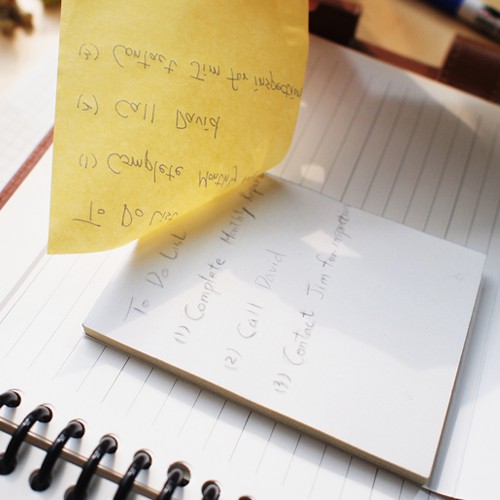 To Do List
(1) Complete Monthly
(2) Call David
(3) Contact Jim for inspection
To Do List
(1) Complete Monthly Report
(2) Call David
(3) Contact Jim for inspection